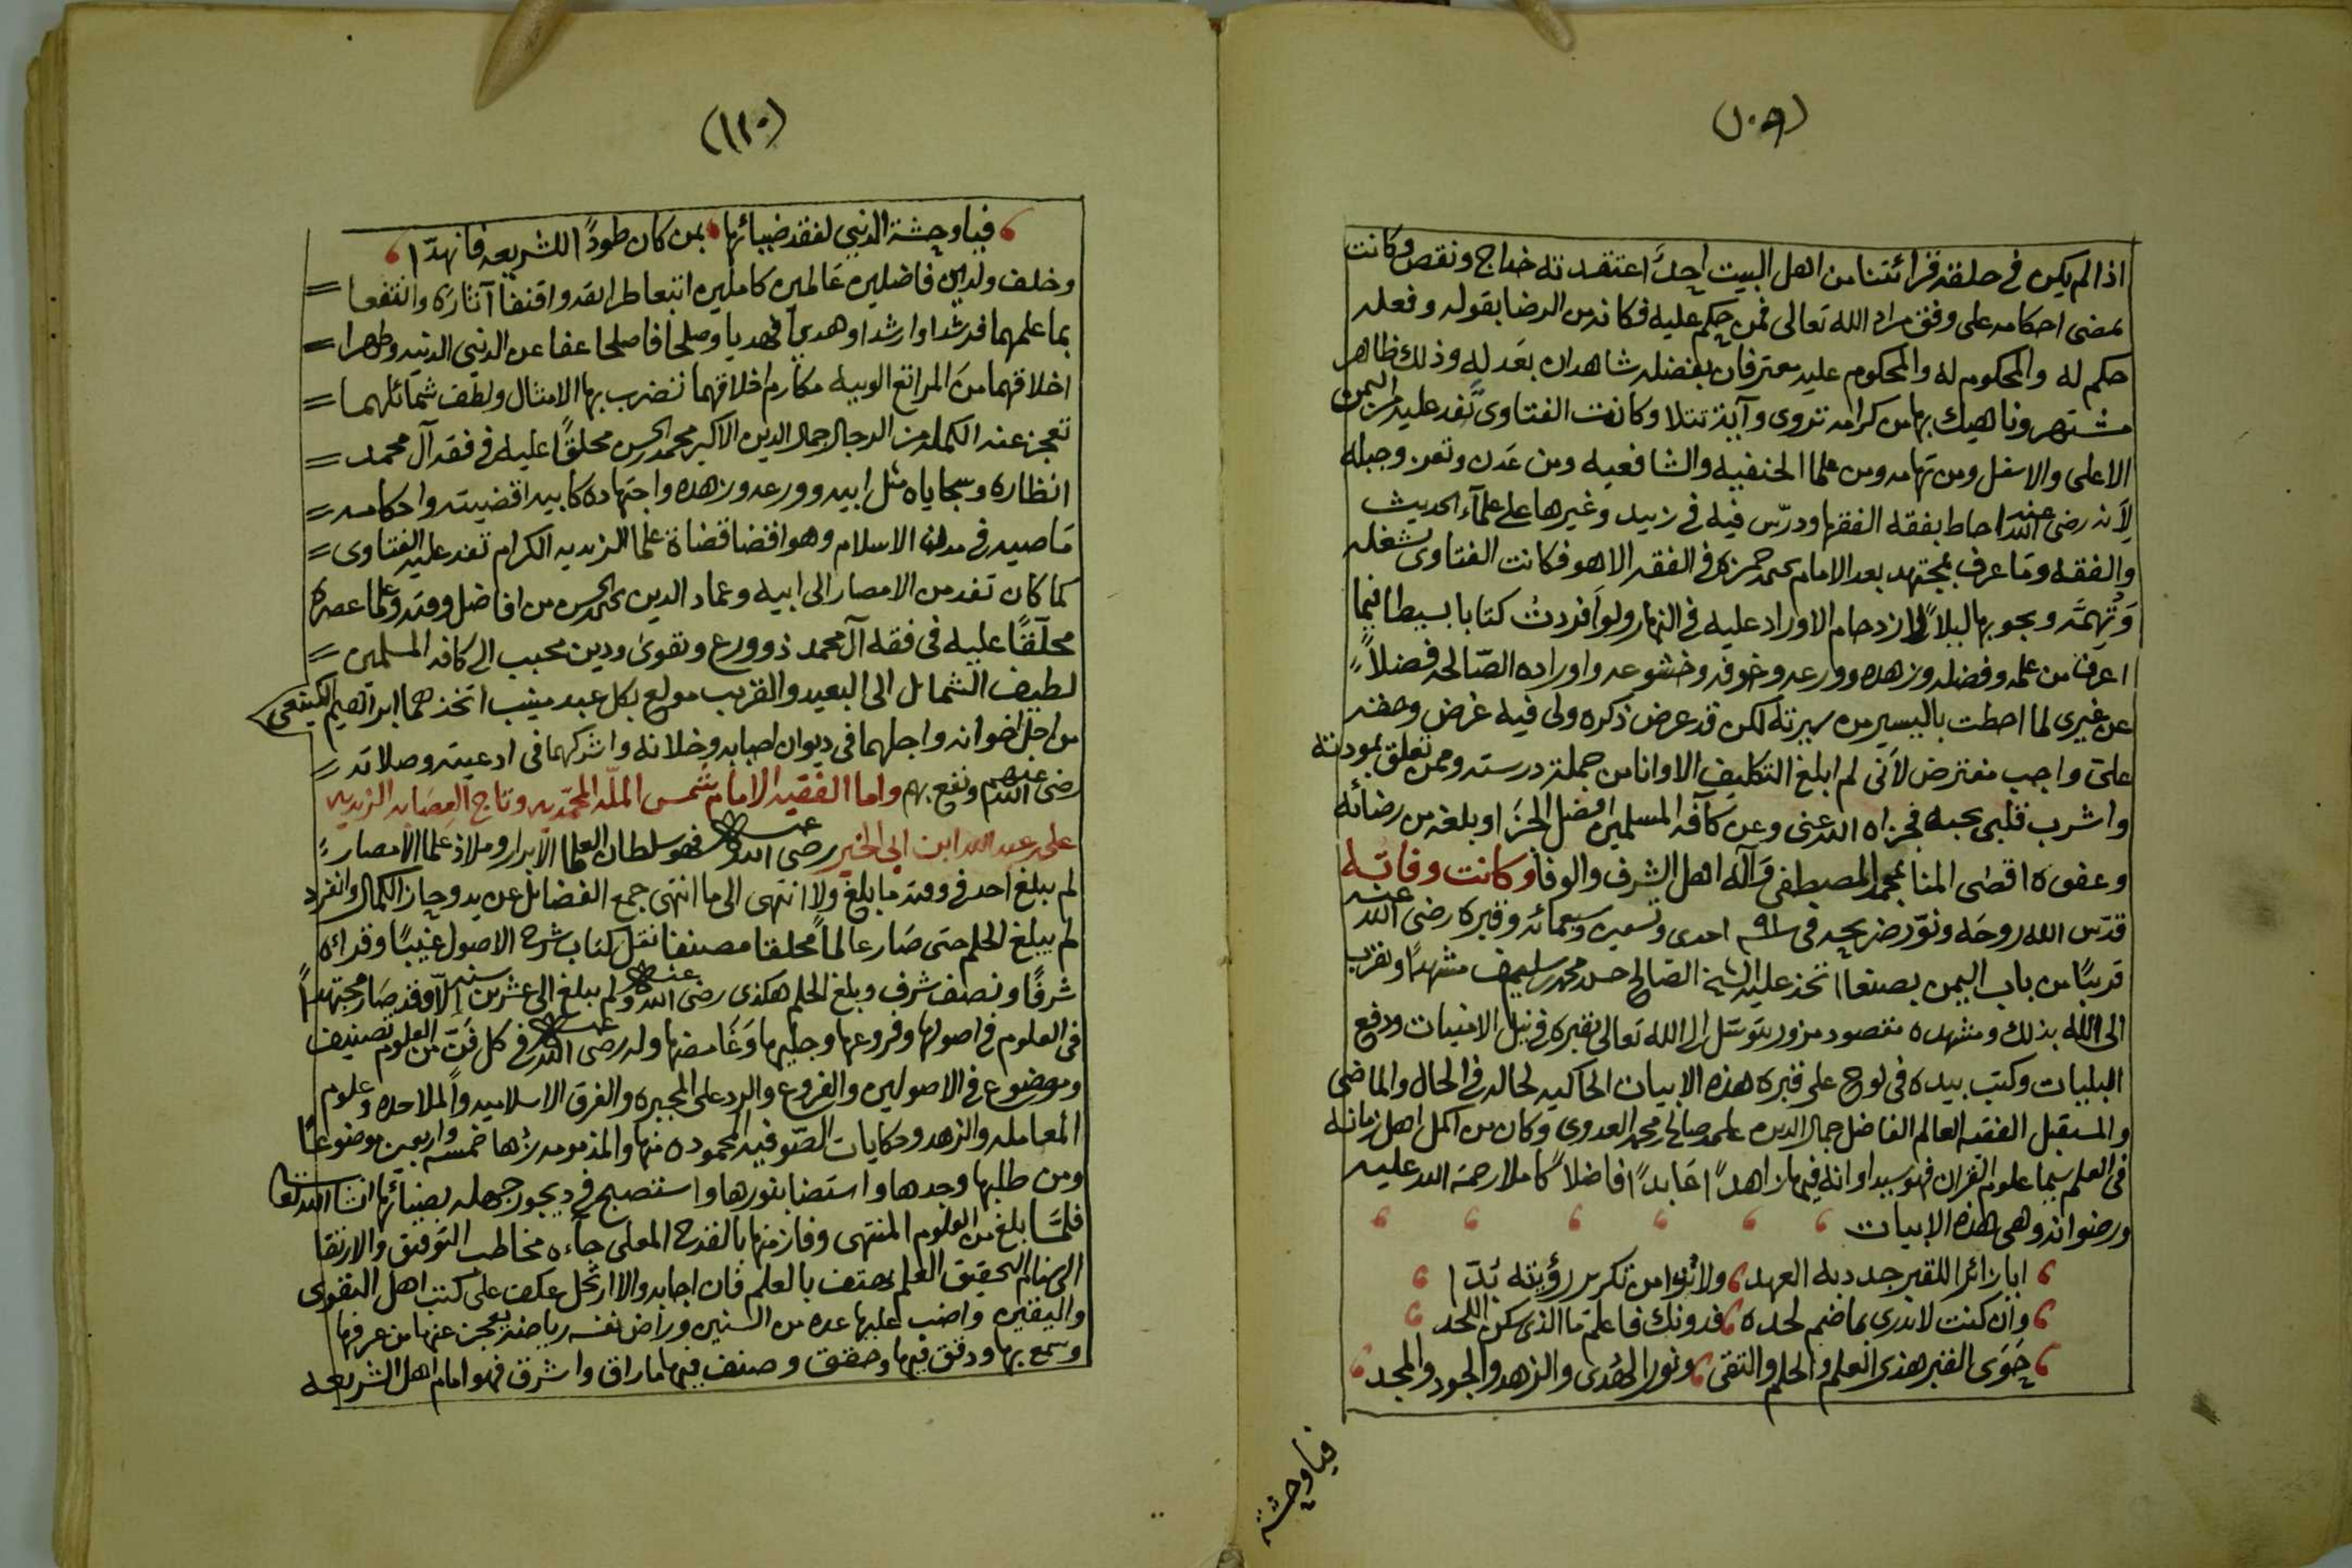 (١٠٩)
اذا لم يكن في حلقة قرائتنا من اهل البيت احدً اعتقدته خداج ونقص وكانت
تمضى احكامه على وفق مراد الله تعالى فمن حكم عليه فكانه من الرضا بقوله وفعله
حكم له والمحكوم له والمحكوم عليه معترفان بفضله شاهدان بعدله وذلك ظاهر
مشتهر وناهيك بها من كرامه تروى وآية تتلا وكانت الفتاوى تفد عليه من اليمن
الاعلى والاسفل ومن تهامه ومن علما الحنفيه والشافعيه ومن عدن وتعز وجبله
لأنه رضى الله عنه احاط بفقه الفقها ودرّس فيه في زبيد وغيرها على علمآء الحديث
والفقه وما عرف بمجتهد بعد الامام يحيى حمزه في الفقه الا هو فكانت الفتاوى تشغله
وتهمّه ويجوبها ليلاً لازدحام الاوراد عليه في النهار ولو افردت كتابا بسيطا فيما
اعرف من علمه وفضله وزهده وورعه وخوفه وخشوعه واوراده الصّالحه فضلاً
عن غيرى لما احطت باليسير من سيرته لكن قد عرض ذكره ولى فيه غرض وحقه
على واجب مفترض لأنى لم ابلغ التكليف الا وانا من جملة درسته وممن تعلق بمودته
واشرب قلبى بحبه فجزاه الله عنى وعن كافة المسلمين افضل الجزا وبلغه من رضائه
وعفوه اقصى المنا بمحمد المصطفى وآله اهل الشرف والوفا وكانت وفاته
قدّس الله روحه ونوّر ضريحه في ٧٩١ احدى وتسعين وسبعمائه وقبره رضى الله عنه
قريبًا من باب اليمن بصنعا اتخذ عليه الشيخ الصّالح حسن محمد سليمن مشهدًا وتقرب
الى الله بذلك ومشهده مقصود مزور يتوسّل الى الله تعالى بقبره في نيل الامنيات ودفع
البليات وكتب بيده في لوح على قبره هذه الابيات الحاكيه لحاله في الحال والماضى
والمستقبل الفقيه العالم الفاضل جمال الدين على صالح محمد العدوى وكان من اكمل اهل زمانه
في العلم سيما علوم القران فهو سيد اوانه فيها زاهدًا عابدًا فاضلاً كاملا رحمة الله عليه
ورضوانه وهى هذه الابيات
ايا زائرا للقبر جدد به العهد ولا تولا من تكرير رؤيته بُدّا
وان كنت لا تدرى بما ضم لحده فدونك فاعلم ما الذى سكن اللحد
حَوَى القبر هذى العلم والحلم والتقى ونور الهُدى والزهد والجود والمجد
فيا وحشة
(١١٠)
فيا وحشة الدنيى لفقد ضيائها بمن كان طودًا للشريعه فانهدّا
وخلف ولدين فاضلين عَالمين كاملين اتبعا طرايقه واقتفا آثاره وانتفعا
بما علمهما فرشدا وارشدا وهديا فهديا وصلحا فاصلحا عفا عن الدنيى الدنيه وطهرا
اخلاقهما من المراتع الوبيه مكارم اخلاقهما تضرب بها الامثال ولطف شمائلهما
تعجز عنه الكمله من الرجال جمال الدين الاكبر محمد الحسن محلقًا عليه في فقه آل محمد
انظاره وسجاياه مثل ابيه وورعه وزهده واجتهاده كابيه اقضيته واحكامه
مَاصيه في مدن الاسلام وهو اقضا قضاة علما الزيديه الكرام تفد عليه الفتاوى
كما كان تفد من الامصار الى ابيه وعماد الدين يحيى الحسن من افاضل وقته وعلما عصره
محلّقًا عليه في فقه آل محمد ذو ورع وتقوى ودين محبب الى كافة المسلمين
لطيف الشمائل الى البعيد والقريب مولع بكل عبد منيب اتخذهما ابراهيم الكينعى
من اجل اخوانه واجلهما في ديوان احبابه وخلانه واشركهما في ادعيته وصلاته
رضى الله عنهم ونفع بهم واما الفقيه الامام شمس الملّه المحمّديه وتاج العصابه الزيديه
على عبد الله ابن ابى الخير رضى الله عنه فهو سلطان العلما الأبرار وملاذ علما الأمصار
لم يبلغ احد في وقته ما بلغ ولا انتهى الى ما انتهى جمع الفضائل عن يد وحاز الكمال وانفرد
لم يبلغ الحلم حتى صَار عالماً محلقا مصنفا نقل كتاب شرح الاصول غيبًا وقراه
شرفًا ونصنف شرف وبلغ الحلم هكذى رضى الله عنه ولم يبلغ الى عشرين سنه الاّ وقد صَار مجتهدًا
في العلوم في اصولها وفروعها وجليها وغامضها وله رضى الله عنه في كل فَنّ من العلوم تصنيف
وموضوع في الاصولين والفروع والرد على المجبره والفرق الاسلاميه والملاحده وعلوم
المعامله والزهد وحكايات الصّوفيه المحموده منها والمذمومه نها خمسه واربعين موضوعًا
ومن طلبها وجدها واستضا بنورها واستصبح في ديجور جهله بضيائها انشا الله تعا
فلمّا بلغ من العلوم المنتهى وفاز منها بالقدح المعلى جآءه مخاطب التوفيق والارتقا
الى عالم التحقيق العلم يهتف بالعلم فان اجابه والا ارتحل عكف على كتب اهل التقوى
واليقين واضب عليها عده من السنين وراض نفسه رياضه يعجز عنها من عرفها
وسمع بها ودقق فيها وحقق وصنف فيها ما راق واشرق فهو امام اهل الشريعه